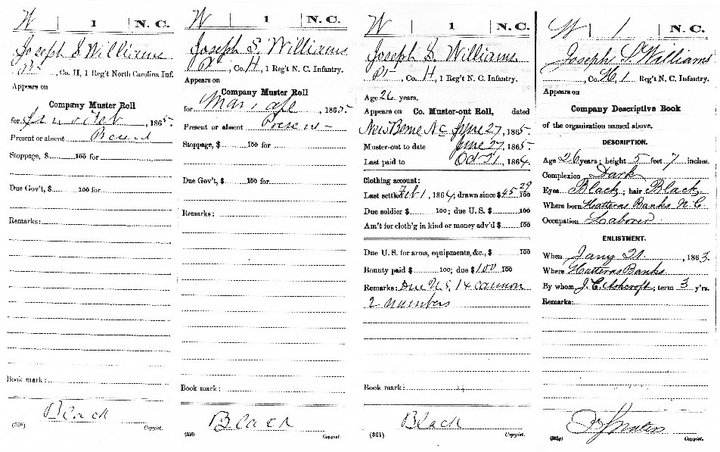 W | 1 | N. C.
Joseph S Williams
Pt., Co. H, 1 Reg't North Carolina Inf.
Appears on
Company Muster Roll
for Jan & Feb, 1865.
Present or absent Present
Stoppage, $ 100 for
Due Gov't, $ 100 for
Remarks:
Book mark:
Black
(358) Copyist.
W | 1 | N. C.
Joseph S. Williams
Pt, Co. H, 1 Reg't N. C. Infantry.
Appears on
Company Muster Roll
for Mar & Apl, 1865.
Present or absent Present
Stoppage, $ 100 for
Due Gov't, $ 100 for
Remarks:
Book mark:
Black
Copyist.
W | 1 | N. C.
Joseph S. Williams
Pt, Co. H, 1 Reg't N. C. Infantry.
Age 26 years.
Appears on Co. Muster-out Roll, dated
New Berne N C June 27, 1865.
Muster-out to date June 27, 1865.
Last paid to Oct 31, 1864.
Clothing account:
Last settled Feb 1, 1864; drawn since $ 45 29 100
Due soldier $ 100; due U. S. $ 100
Am't for cloth'g in kind or money adv'd $ 100
Due U. S. for arms, equipments, &c., $ 100
Bounty paid $ 100; due $ 100 100
Remarks: Due U. S. 1 cannon
2 numbers
Book mark:
Black
(361) Copyist.
W | 1 | N. C.
Joseph S. Williams
, Co. H, 1 Reg't N. C. Infantry.
Appears on
Company Descriptive Book
of the organization named above.
DESCRIPTION.
Age 26 years; height 5 feet 7 inches.
Complexion Dark
Eyes Black; hair Black
Where born Hatteras Banks N. C.
Occupation Laborer
ENLISTMENT.
When Jany 21, 1863.
Where Hatteras Banks
By whom J. C. Ashcroft; term 3 y'rs.
Remarks:
Copyist.